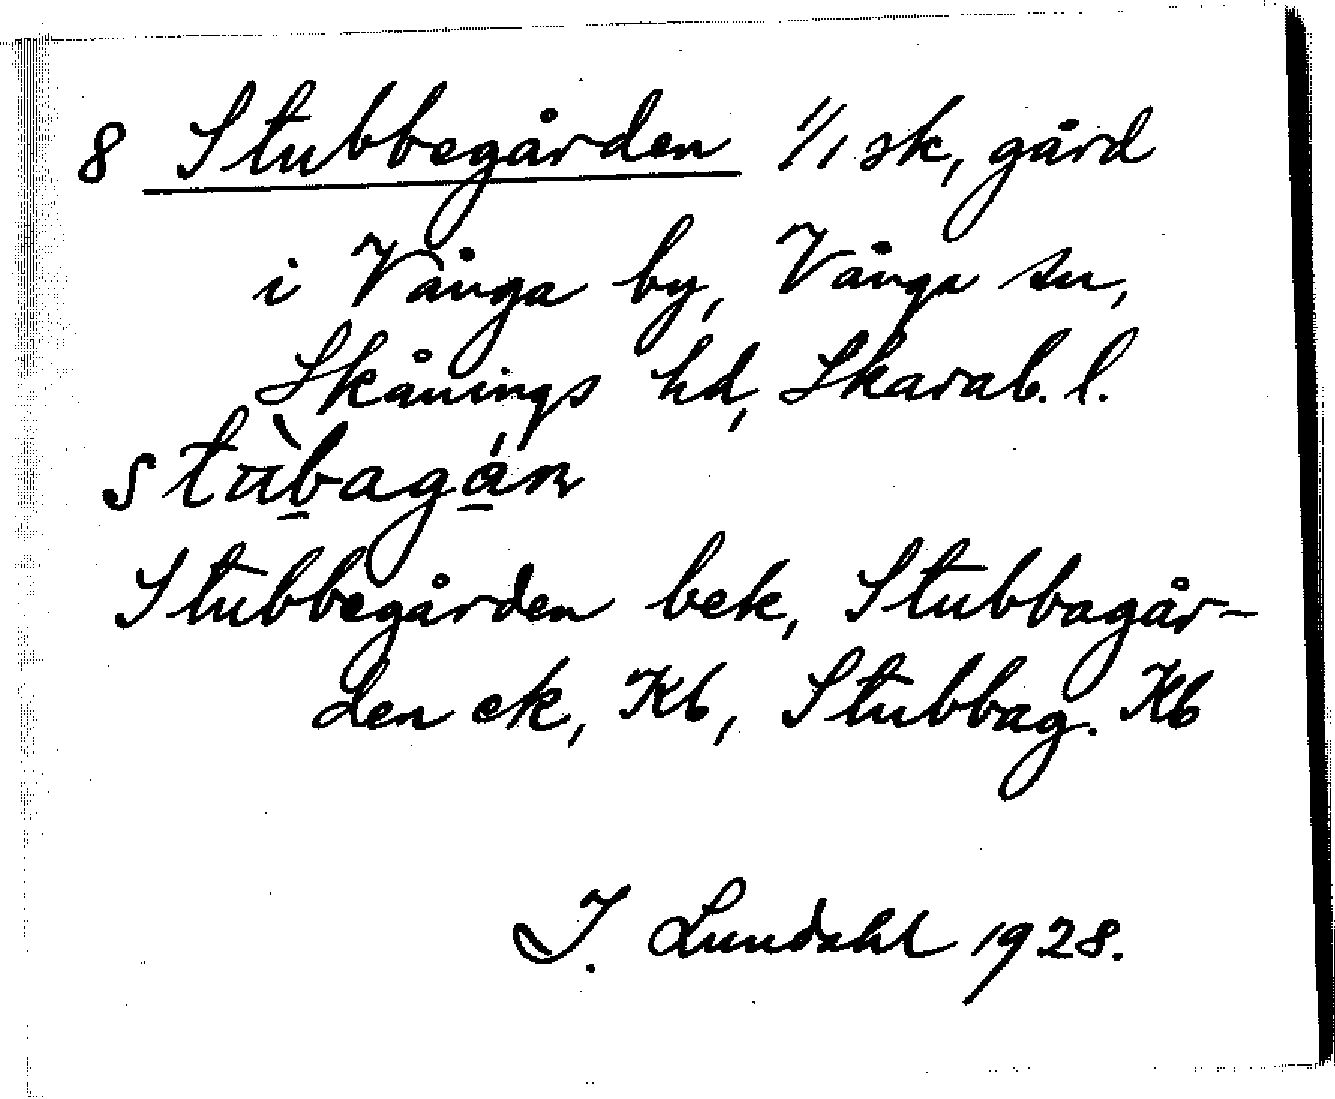 8 Stubbegården 1/1 sk, gård
i Vånga by, Vånga sn,
Skånings hd, Skarab. l.
stùbagán
Stubbegården bek, Stubbagår-
den ek, Kb, Stubbag. Kb
I. Lundahl 1928.